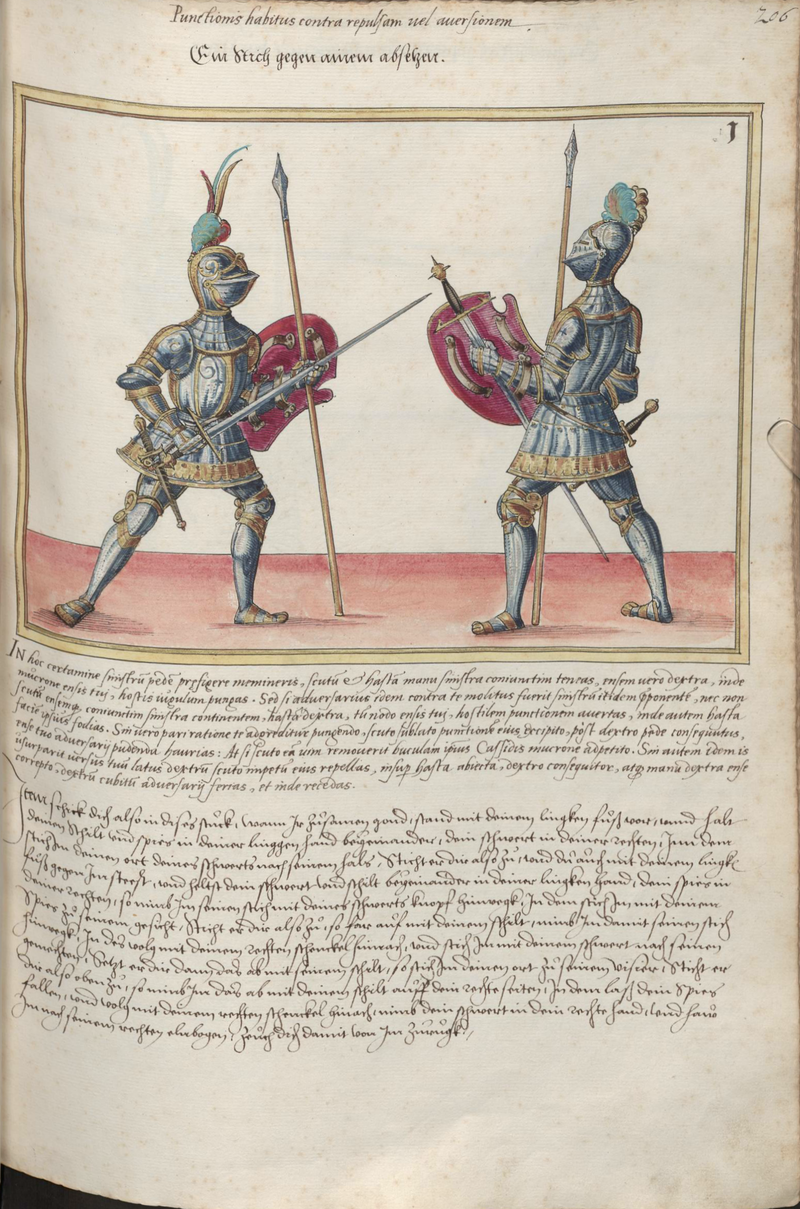 Punctionis habitus contra repulsam uel auersionem
206
Ein Stich gegen ainem absetzen.
1
IN hoc certamine sinistrũ pedẽ prefixere memineris, scutũ & hastã manu sinistra coniunctim teneas, ensem uero dextra, inde
mucrone ensis tui, hostis iugulum pungas. Sed si aduersarius idem contra te molitus fuerit sinistrũ itidem pponente, nec non
scutũ ensemq coniunctim sinistra continentem, hastã dextra, tũ nodo ensis tui, hostilem punctionem auertas, inde autem hasta
faciẽ ipsius fodias. Sin uero pari ratione te adoreditur pungendo, scuto sublato punctionẽ eius excipito, post dextro pede consequutus,
ense tuo aduersarij pudenda haurias: At si scuto eã uim remouerit buculam ipsius Cassidis mucrone adpetito. Sin autem idem is
usurparit uersus tuũ latus dextrũ scuto impetũ eius repellas, insup hasta abiecta, dextro consequitor, atq manu dextra ense
correpto, dextrũ cubitũ aduersarij ferias, et inde recedas.
Item schick dich also in dises stuck, wann Ir zusamen gond, stand mit deinem lingken fuß vor, vnnd halt
deinen schilt vnd spies in deiner linggen hand beyeinander, dein schwert in deiner rechten, Inn dem
stich Im deinen ort deines schwerts nach seinem hals, Sticht er dir also zu, vnnd du auch mit deinem lingkẽ
fuß gegen Im steest, vnd heltst dein schwert vnd schilt beyeinander in deiner lingken hand, dein spies in
deiner rechten, so nimb Im seinen stich mit deines schwerts knopf hinwegk, In dem stich Im mit deinem
Spies zu seinem gesicht, Sticht er dir also zu, so far auf mit deinem schilt, nimb Im damit seinen stich
hinwegk, In des volg mit deinem rechten schenckel hinnach, vnd stich Im mit deinem schwert nach seinen
gemechten, Setzt er dir dann das ab mit seinem schilt, so stich Im deinen ort zu seinem visier, Sticht er
dir also oben zu, so nimb Im das ab mit deinem schilt auff dein rechte seiten, In dem laß dein Spies
fallen, vnnd volg mit deinem rechten schenckel hinach, nimb dein schwert in dein rechte hand, vnd haw
Im nach seinem rechten elnbogen, zeuch dich damit von Im zurugk.